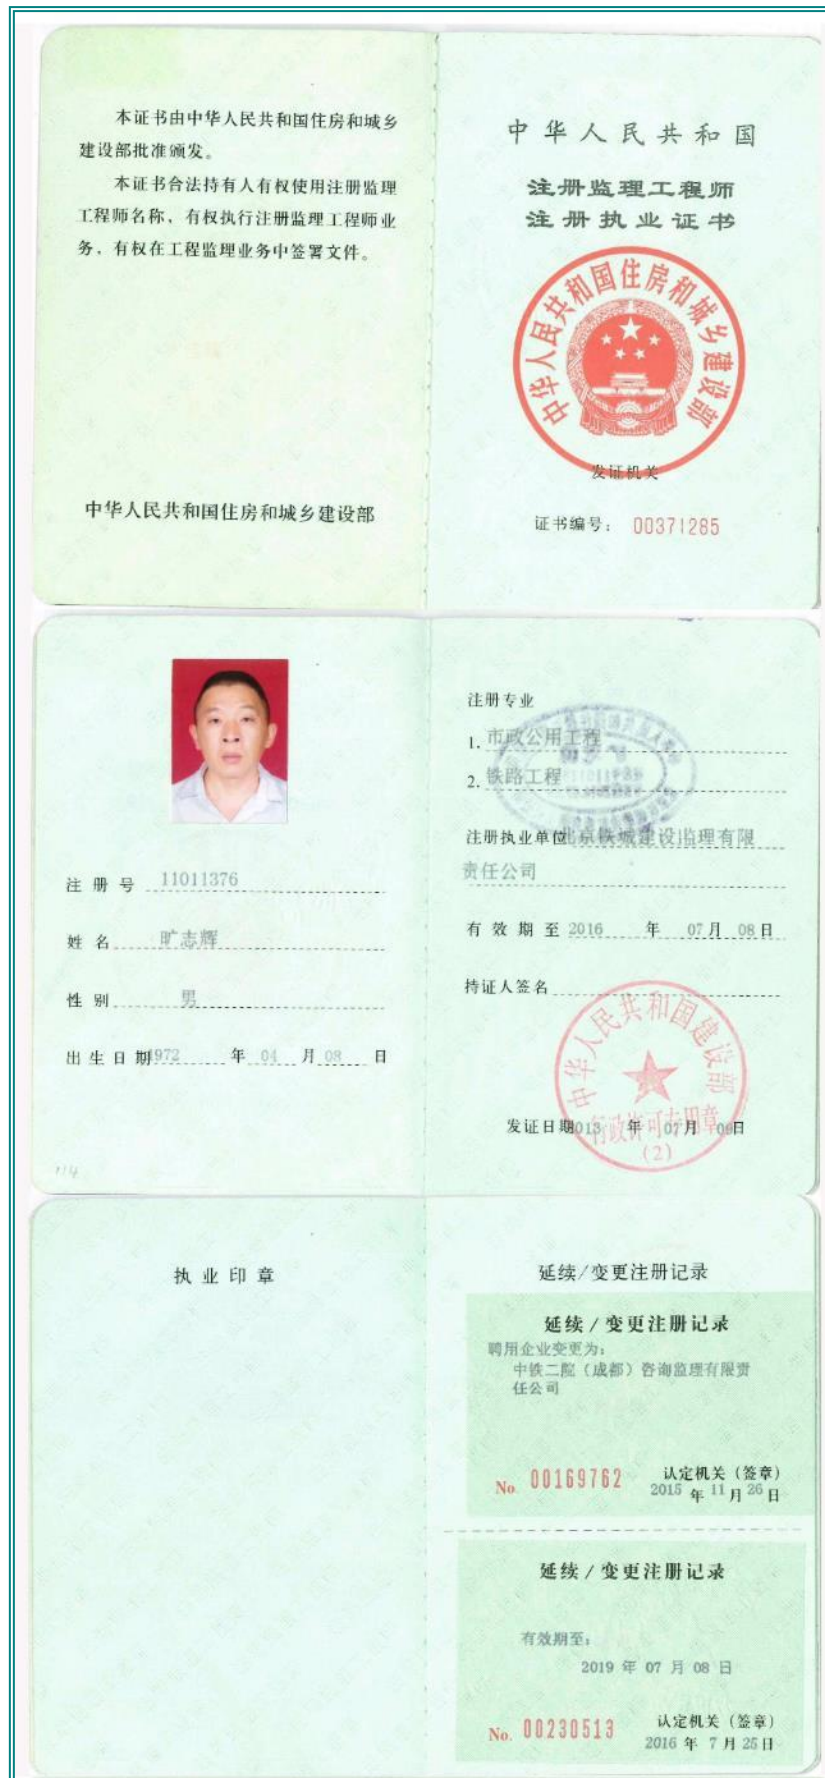 本证书由中华人民共和国住房和城乡
建设部批准颁发。
本证书合法持有人有权使用注册监理
工程师名称、有权执行注册监理工程师业
务、有权在工程监理业务中签署文件。
中华人民共和国住房和城乡建设部
中华人民共和国
注册监理工程师
注册执业证书
中华人民共和国住房和城乡建设部
发证机关
证书编号： 00371285
注册号 11011376
姓名 旷志辉
性别 男
出生日期1972 年 04 月 08 日
114
注册专业
1. 市政公用工程
2. 铁路工程
注册执业单位北京铁城建设监理有限
责任公司
有效期至 2016 年 07月 08日
持证人签名
中华人民共和国建设部
行政许可专用章
(2)
发证日期013 年 07月 09日
执业印章
延续/变更注册记录
延续/变更注册记录
聘用企业变更为：
中铁二院（成都）咨询监理有限责
任公司
No. 00169762
认定机关（签章）
2015 年 11 月 26 日
延续/变更注册记录
有效期至：
2019 年 07 月 08 日
No. 00230513
认定机关（签章）
2016 年 7 月 25日